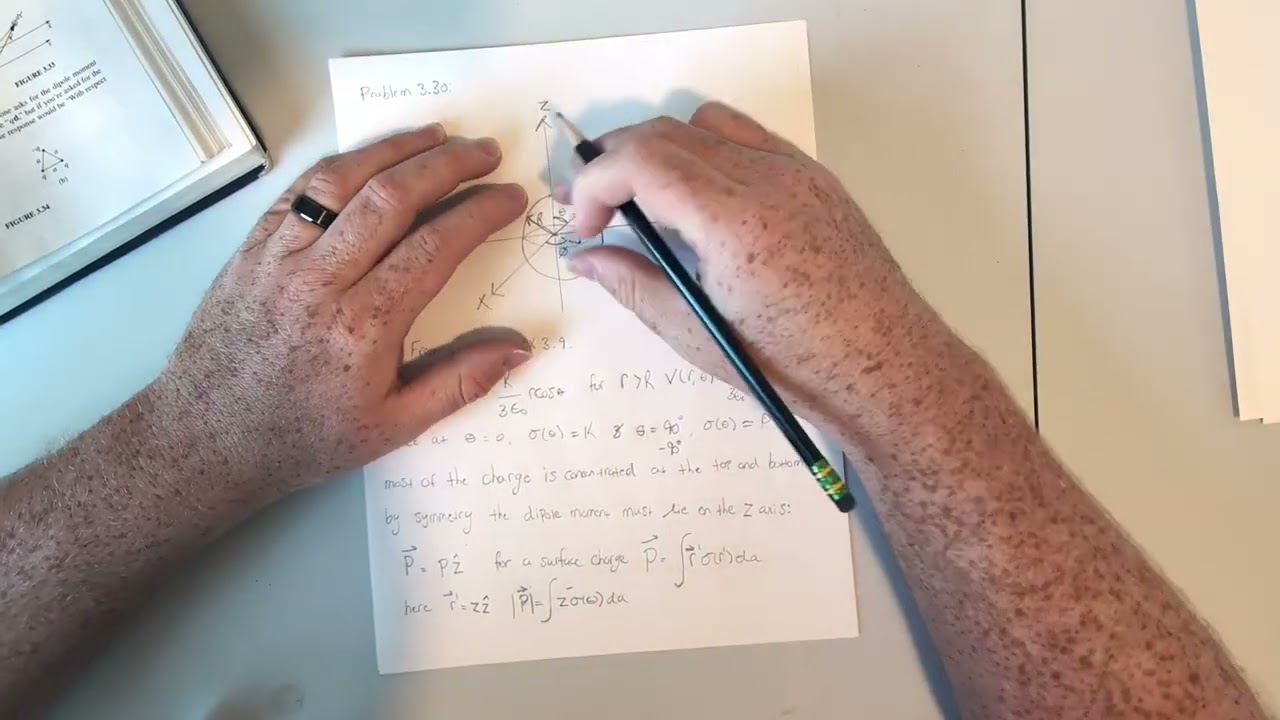 FIGURE 3.33
one asks for the dipole moment
"qd," but if you're asked for the
response would be "With respect
-q
a a
a q
q
(b)
FIGURE 3.34
Problem 3.30:
Z
R θ
φ
X
X 3.9.
K/3ε₀ rcosθ for r>R V(r,θ)
3ε₀
at θ=0, σ(θ)=K & θ=90°, σ(θ)=
-90°
most of the charge is concentrated at the top and bottom
by symmetry the dipole moment must lie on the Z axis:
P⃗ = pẑ for a surface charge P⃗ = ∫r⃗'σ(r')da
here r⃗' = zẑ |P⃗|=∫zσ(θ)da